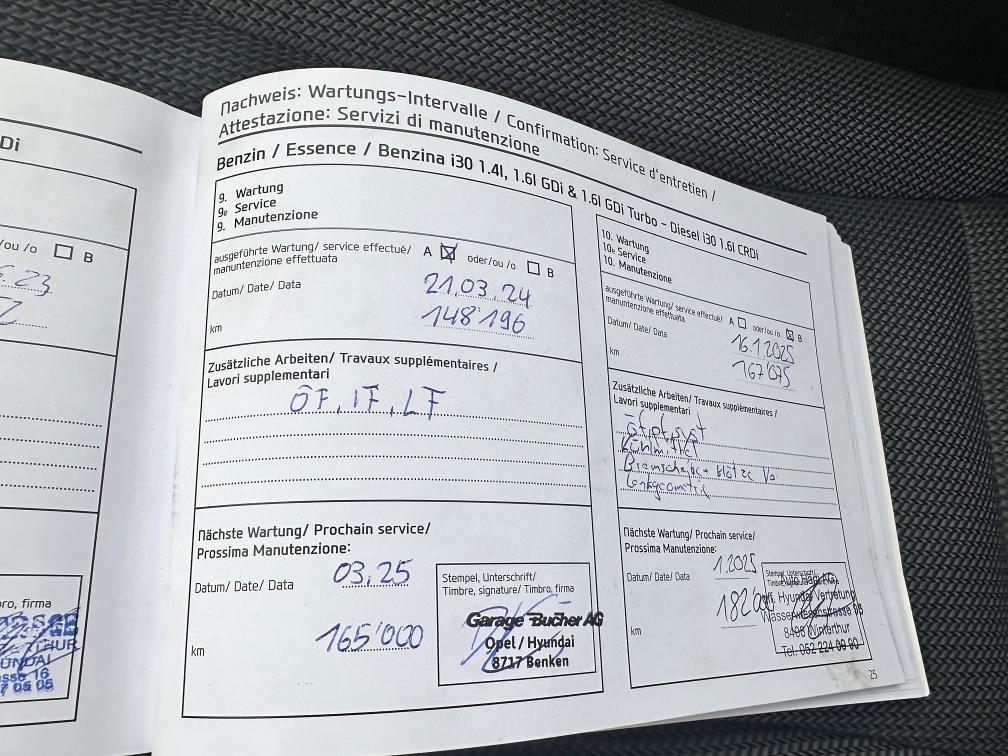 Nachweis: Wartungs-Intervalle / Confirmation: Service d'entretien /
Attestazione: Servizi di manutenzione
Benzin / Essence / Benzina i30 1.4l, 1.6l GDi & 1.6l GDi Turbo - Diesel i30 1.6l CRDi
9. Wartung
9e Service
9. Manutenzione
ausgeführte Wartung/ service effectué/ A oder/ou /o B
manuntenzione effettuata
Datum/ Date/ Data 21.03.24
km 148'196
Zusätzliche Arbeiten/ Travaux supplémentaires /
Lavori supplementari
ÖF, IF, LF
Nächste Wartung/ Prochain service/
Prossima Manutenzione:
Datum/ Date/ Data 03.25
km 165'000
Stempel, Unterschrift/
Timbre, signature/ Timbro, firma
Garage Bucher AG
Opel / Hyundai
8717 Benken
10. Wartung
10e Service
10. Manutenzione
ausgeführte Wartung/ service effectué/ A oder/ou /o B
manuntenzione effettuata
Datum/ Date/ Data 16.1.2025
km 167'075
Zusätzliche Arbeiten/ Travaux supplémentaires/
Lavori supplementari
Kühlmittel
Bremscheibe + klötze Vo
Lenkgeometrie
Nächste Wartung/ Prochain service/
Prossima Manutenzione:
Datum/ Date/ Data 1.2025
km
Stempel, Unterschrift/
Hyundai Vertretung
Wasserwiesenstrasse
Winterthur
Tel. 052 224
25
Di
/ou /o B
ro, firma